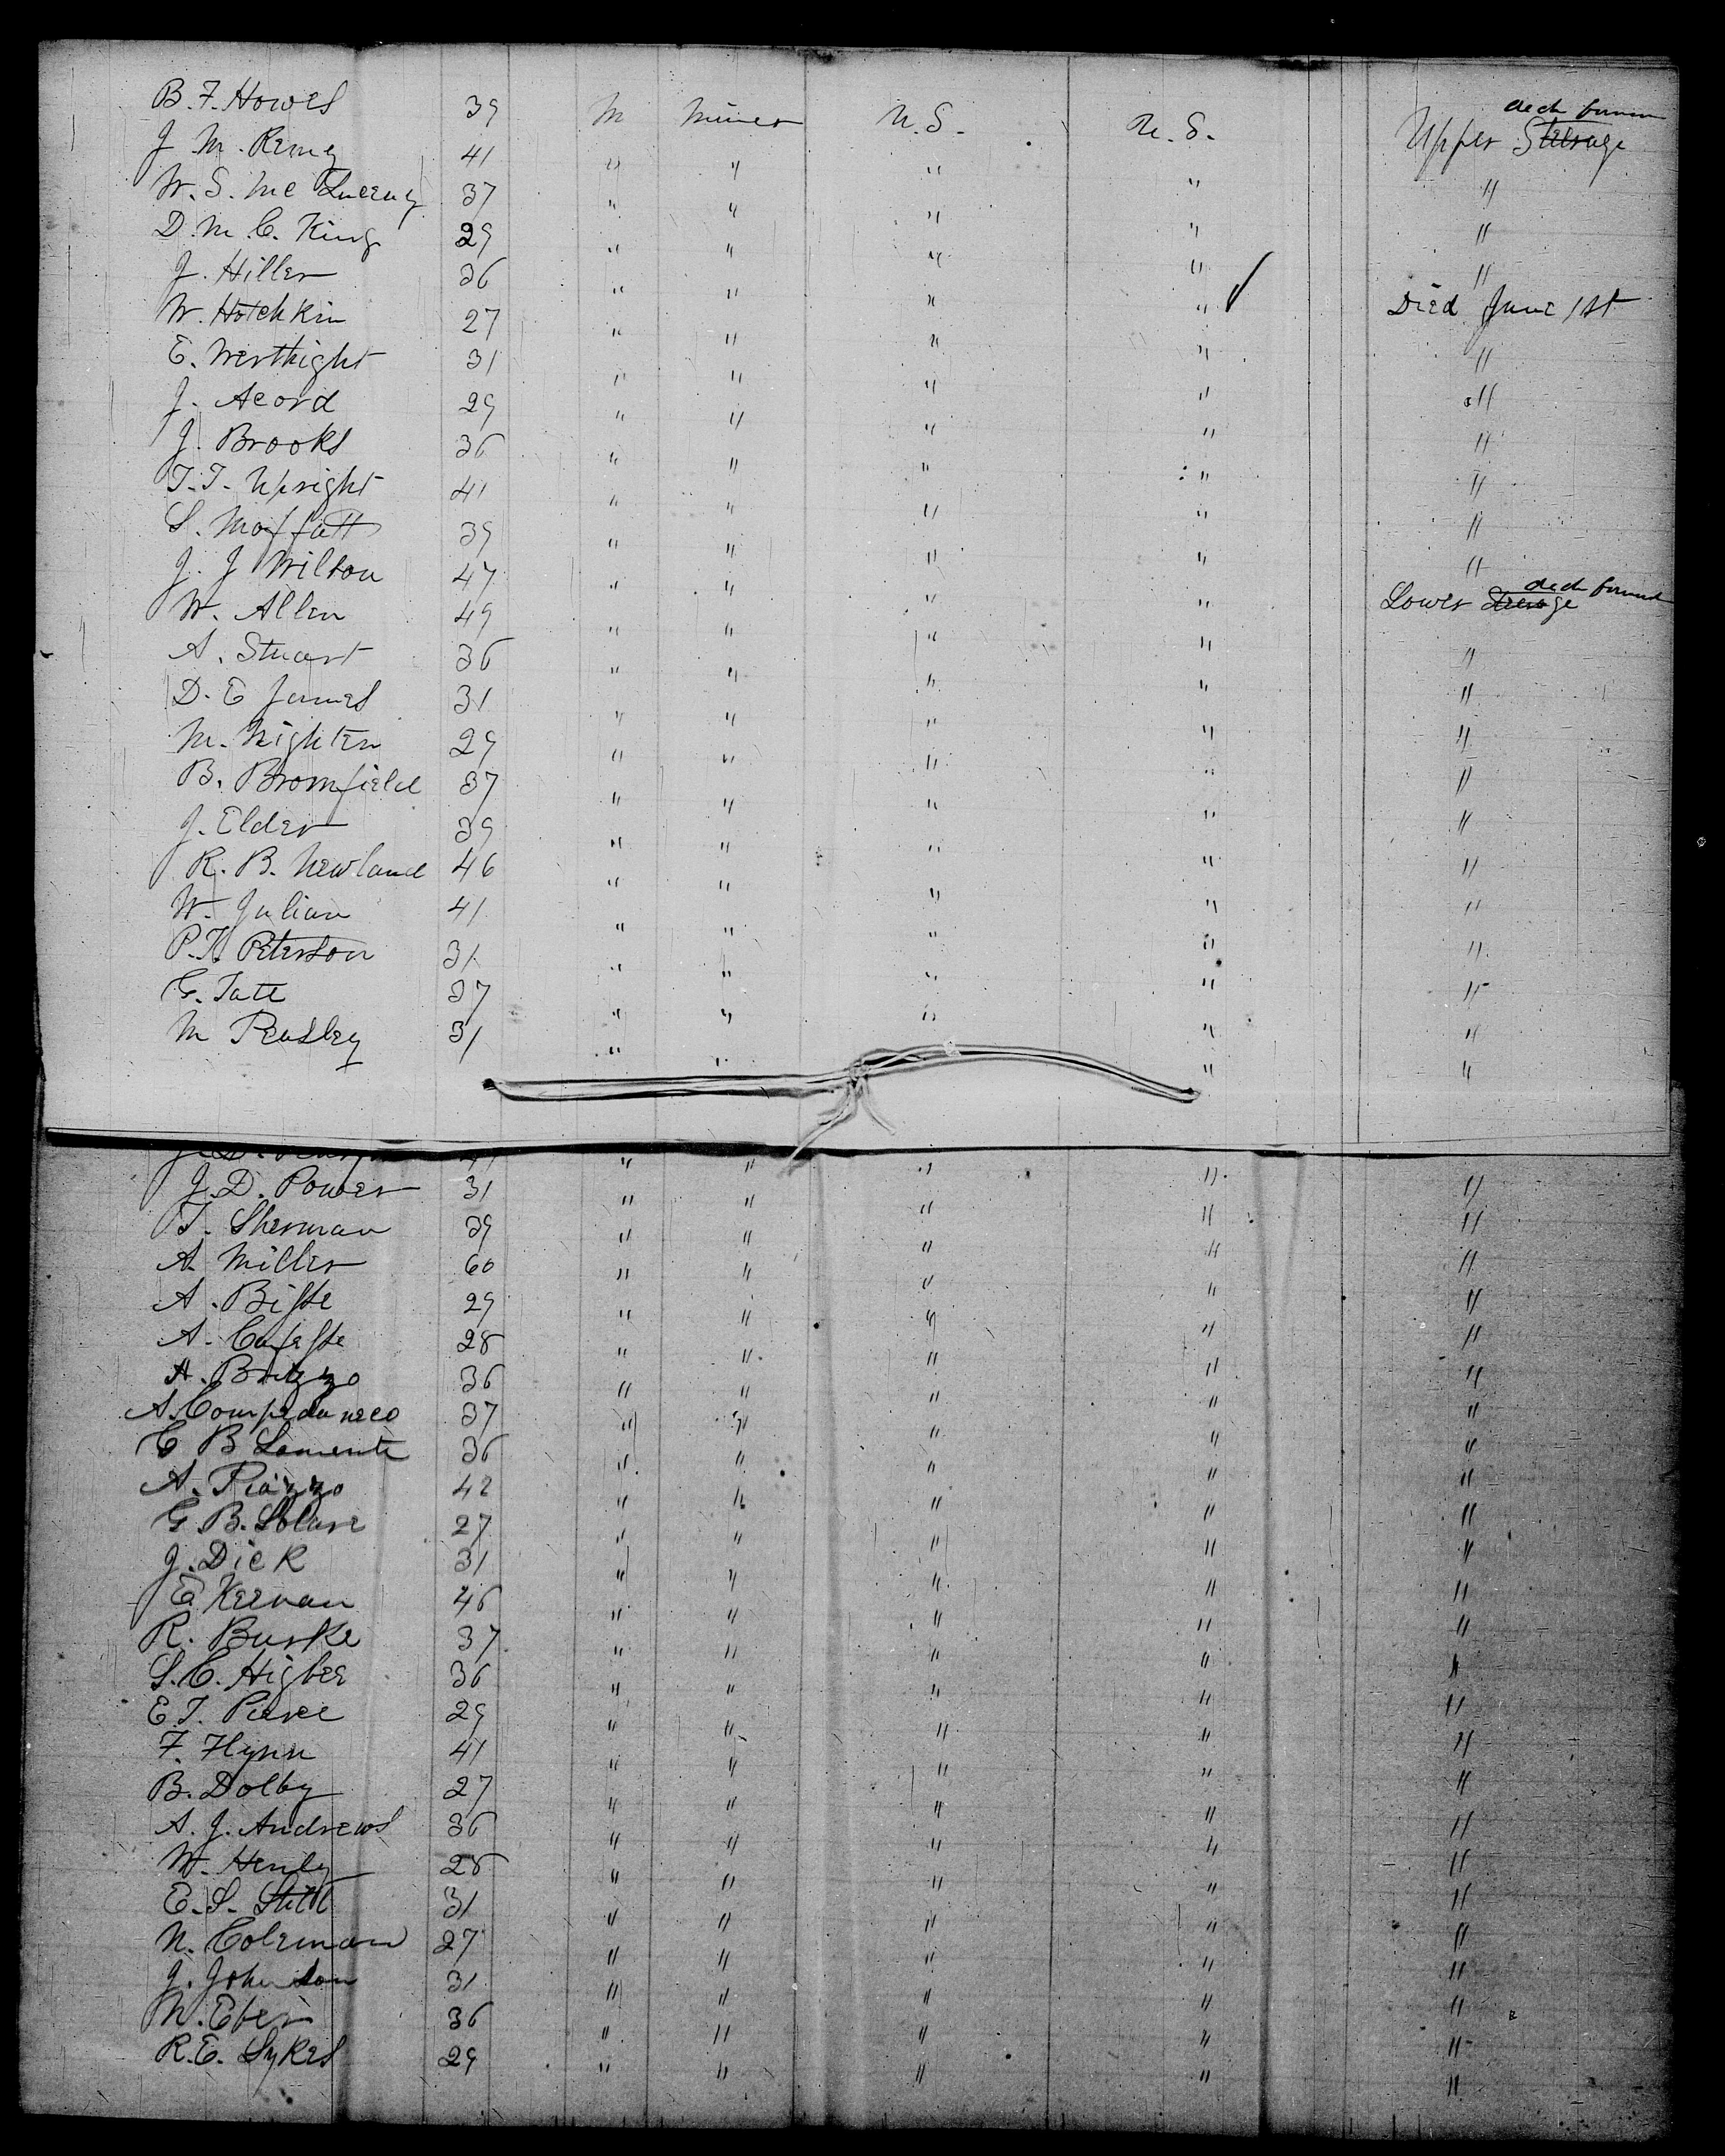 B. F. Howes 39 M Miner U.S. U.S. Upper Steerage deck forward
J. M. Remey 41 " " " " "
W. S. Mc 37 " " " " "
D. M. C. King 29 " " " " "
J. Hiller 36 " " " " ✓
W. Hotchkin 27 " " " " Died June 1st
E. Westhight 31 " " " " "
J. Acord 29 " " " " "
J. Brooks 36 " " " " "
T. T. Upright 41 " " " " "
S. Moffatt 39 " " " " "
J. J Wilson 47 " " " " "
W. Allen 49 " " " " Lower Steerage deck forward
A. Stuart 36 " " " " "
D. E James 31 " " " " "
M. Nighten 29 " " " " "
B. Bromfield 37 " " " " "
J. Elder 39 " " " " "
R. B. Newland 46 " " " " "
W. Julian 41 " " " " "
P. K. Peterson 31 " " " " "
G. Tate 37 " " " " "
M Peasley 31 " " " "
J. D. Power 31 " " " " "
T. Sherman 39 " " " " "
A. Miller 60 " " " " "
A. 29 " " " " "
A. 28 " " " " "
A. 36 " " " " "
A. 37 " " " " "
C B Lamenti 36 " " " " "
A. Piazzo 42 " " " " "
G. B. Solari 27 " " " " "
J. Dick 31 " " " " "
E Keenan 46 " " " " "
R. Burke 37 " " " " "
S. C. Higbee 36 " " " " "
E. T. Pierce 29 " " " " "
F. Flynn 41 " " " " "
B. Dolby 27 " " " " "
A. J. Andrews 36 " " " " "
W. Henly 28 " " " " "
E. S. Still 31 " " " " "
N. Coleman 27 " " " " "
J. Johnson 31 " " " " "
M. Eber 36 " " " " "
R. E. Sykes 29 " " " " "